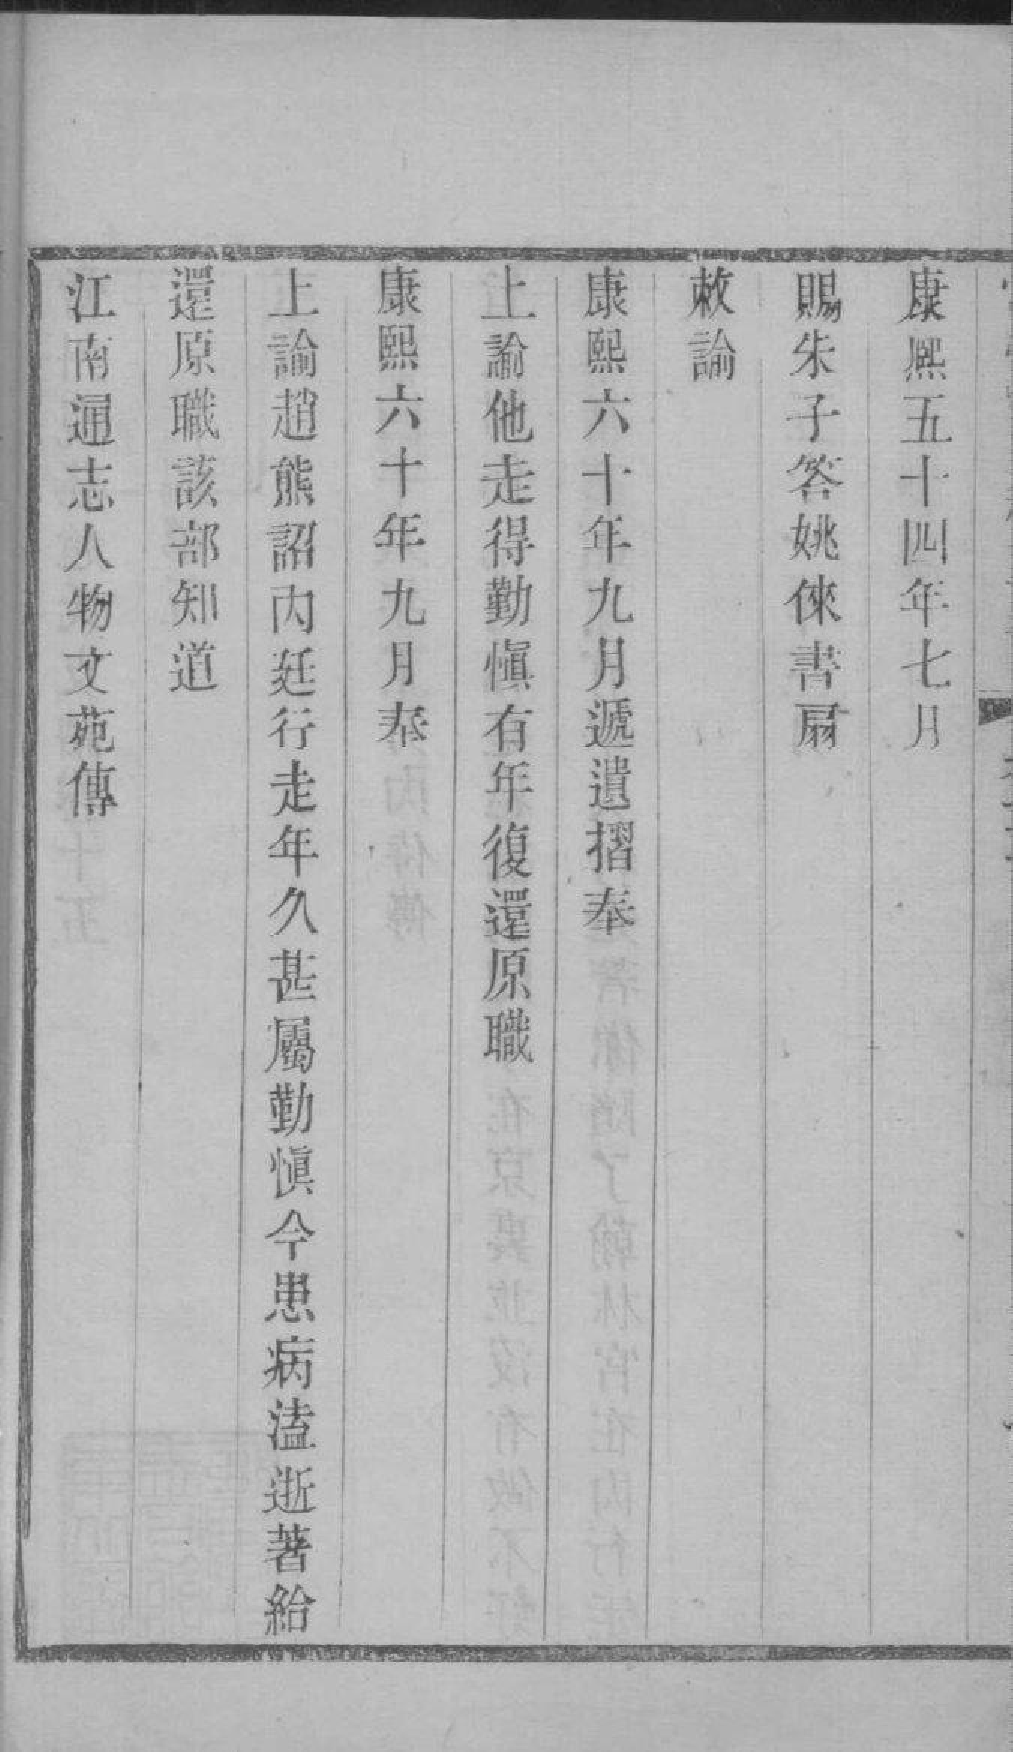 康熙五十四年七月
賜朱子答姚倈書扇
敕諭
康熙六十年九月遞遺摺奉
上諭他走得勤慎有年復還原職
康熙六十年九月奉
上諭趙熊詔內廷行走年久甚屬勤慎今患病溘逝著給
還原職該部知道
江南通志人物文苑傳